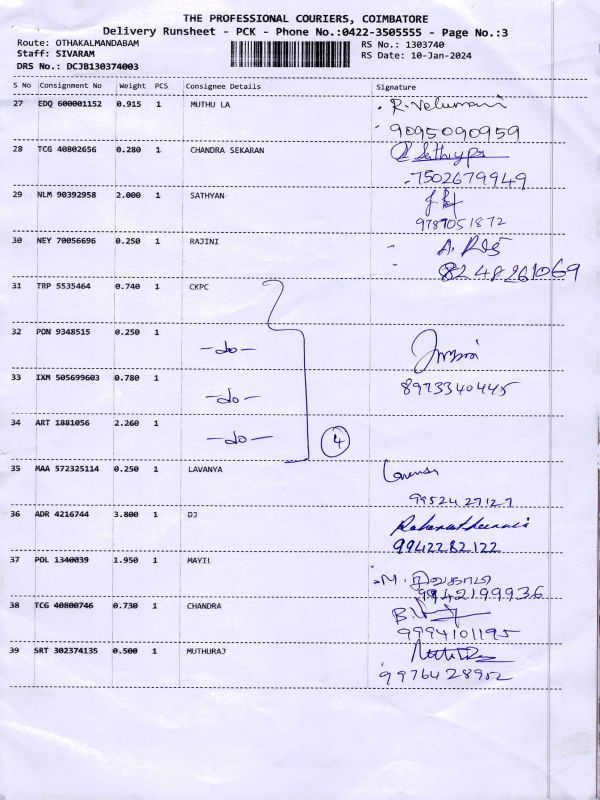 THE PROFESSIONAL COURIERS, COIMBATORE
Delivery Runsheet - PCK - Phone No.:0422-3505555 - Page No.:3
Route: OTHAKALMANDABAM RS No.: 1303740
Staff: SIVARAM RS Date: 10-Jan-2024
DRS No.: DCJB130374003
S No Consignment No Weight PCS Consignee Details Signature
27 EDQ 600001152 0.915 1 MUTHU LA R. Velumani
9095090959
28 TCG 40802656 0.280 1 CHANDRA SEKARAN
7502679949
29 NLM 90392958 2.000 1 SATHYAN
9787051872
30 NEY 70056696 0.250 1 RAJINI
8248261069
31 TRP 5535464 0.740 1 CKPC
32 PON 9348515 0.250 1
-do-
33 IXM 505699603 0.780 1 8973340445
-do-
34 ART 1881056 2.260 1
-do- 4
35 MAA 572325114 0.250 1 LAVANYA
9952427127
36 ADR 4216744 3.800 1 DJ
9942282122
37 POL 1340039 1.950 1 MAYIL
9942199936
38 TCG 40800746 0.730 1 CHANDRA
9994101195
39 SRT 302374135 0.500 1 MUTHURAJ
9976428952